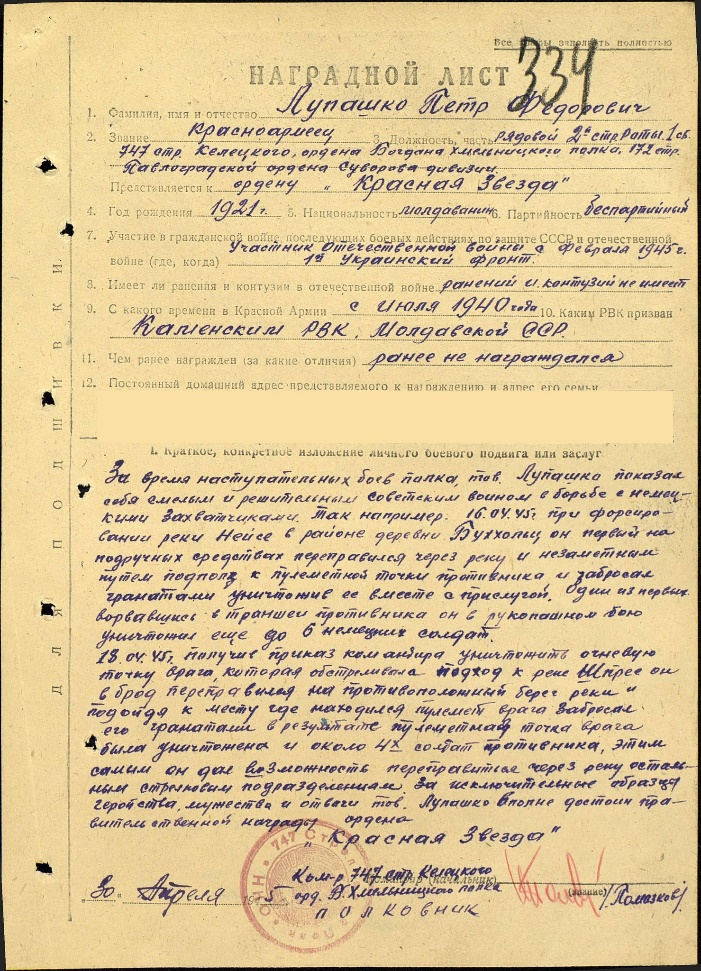 Все графы заполнять полностью
334
НАГРАДНОЙ ЛИСТ
1. Фамилия, имя и отчество Лупашко Петр Федорович
2. Звание Красноармеец 3. Должность, часть рядовой 2й стр роты 1 сб.
747 стр. Келецкого, ордена Богдана Хмельницкого полка, 172 стр.
Павлоградской ордена Суворова дивизии.
Представляется к ордену „Красная Звезда"
4. Год рождения 1921 г. 5. Национальность молдаванин 6. Партийность беспартийный
7. Участие в гражданской войне, последующих боевых действиях по защите СССР и отечественной
войне (где, когда) Участник Отечественной войны с Февраля 1945 г.
1й Украинский фронт.
8. Имеет ли ранения и контузии в отечественной войне ранений и контузий не имеет
9. С какого времени в Красной Армии с июля 1940 года 10. Каким РВК призван
Каменским РВК, Молдавской ССР.
11. Чем ранее награжден (за какие отличия) ранее не награждался
12. Постоянный домашний адрес представляемого к награждению и адрес его семьи
I. Краткое, конкретное изложение личного боевого подвига или заслуг
За время наступательных боев полка, тов. Лупашко показал
себя смелым и решительным советским воином в борьбе с немец-
кими захватчиками. Так например: 16.04.45г. при форсиро-
вании реки Нейсе в районе деревни Буххольц он первый на
подручных средствах переправился через реку и незаметным
путем подполз к пулеметной точки противника и забросал
гранатами уничтожив ее вместе с прислугой. Один из первых
ворвавшись в траншеи противника он в рукопашном бою
уничтожил еще до 6 немецких солдат.
18.04.45г. получив приказ командира уничтожить огневую
точку врага, которая обстреливала подход к реке Шпрее он
в брод переправился на противоположный берег реки и
подойдя к месту где находился пулемет врага забросал
его гранатами в результате пулеметная точка врага
была уничтожена и около 4х солдат противника, этим
самым он дал возможность переправиться через реку осталь-
ным стрелковым подразделениям. За исключительные образцы
геройства, мужества и отваги тов. Лупашко вполне достоин пра-
вительственной награды ордена
„Красная Звезда"
Ком-р 747 стр. Келецкого
Командир (начальник)
30 Апреля 1945 орд. Б. Хмельницкого полка (звание) /Полтзков/
ПОЛКОВНИК
747 Стрелк
Полк
ДЛЯ ПОДШИВКИ